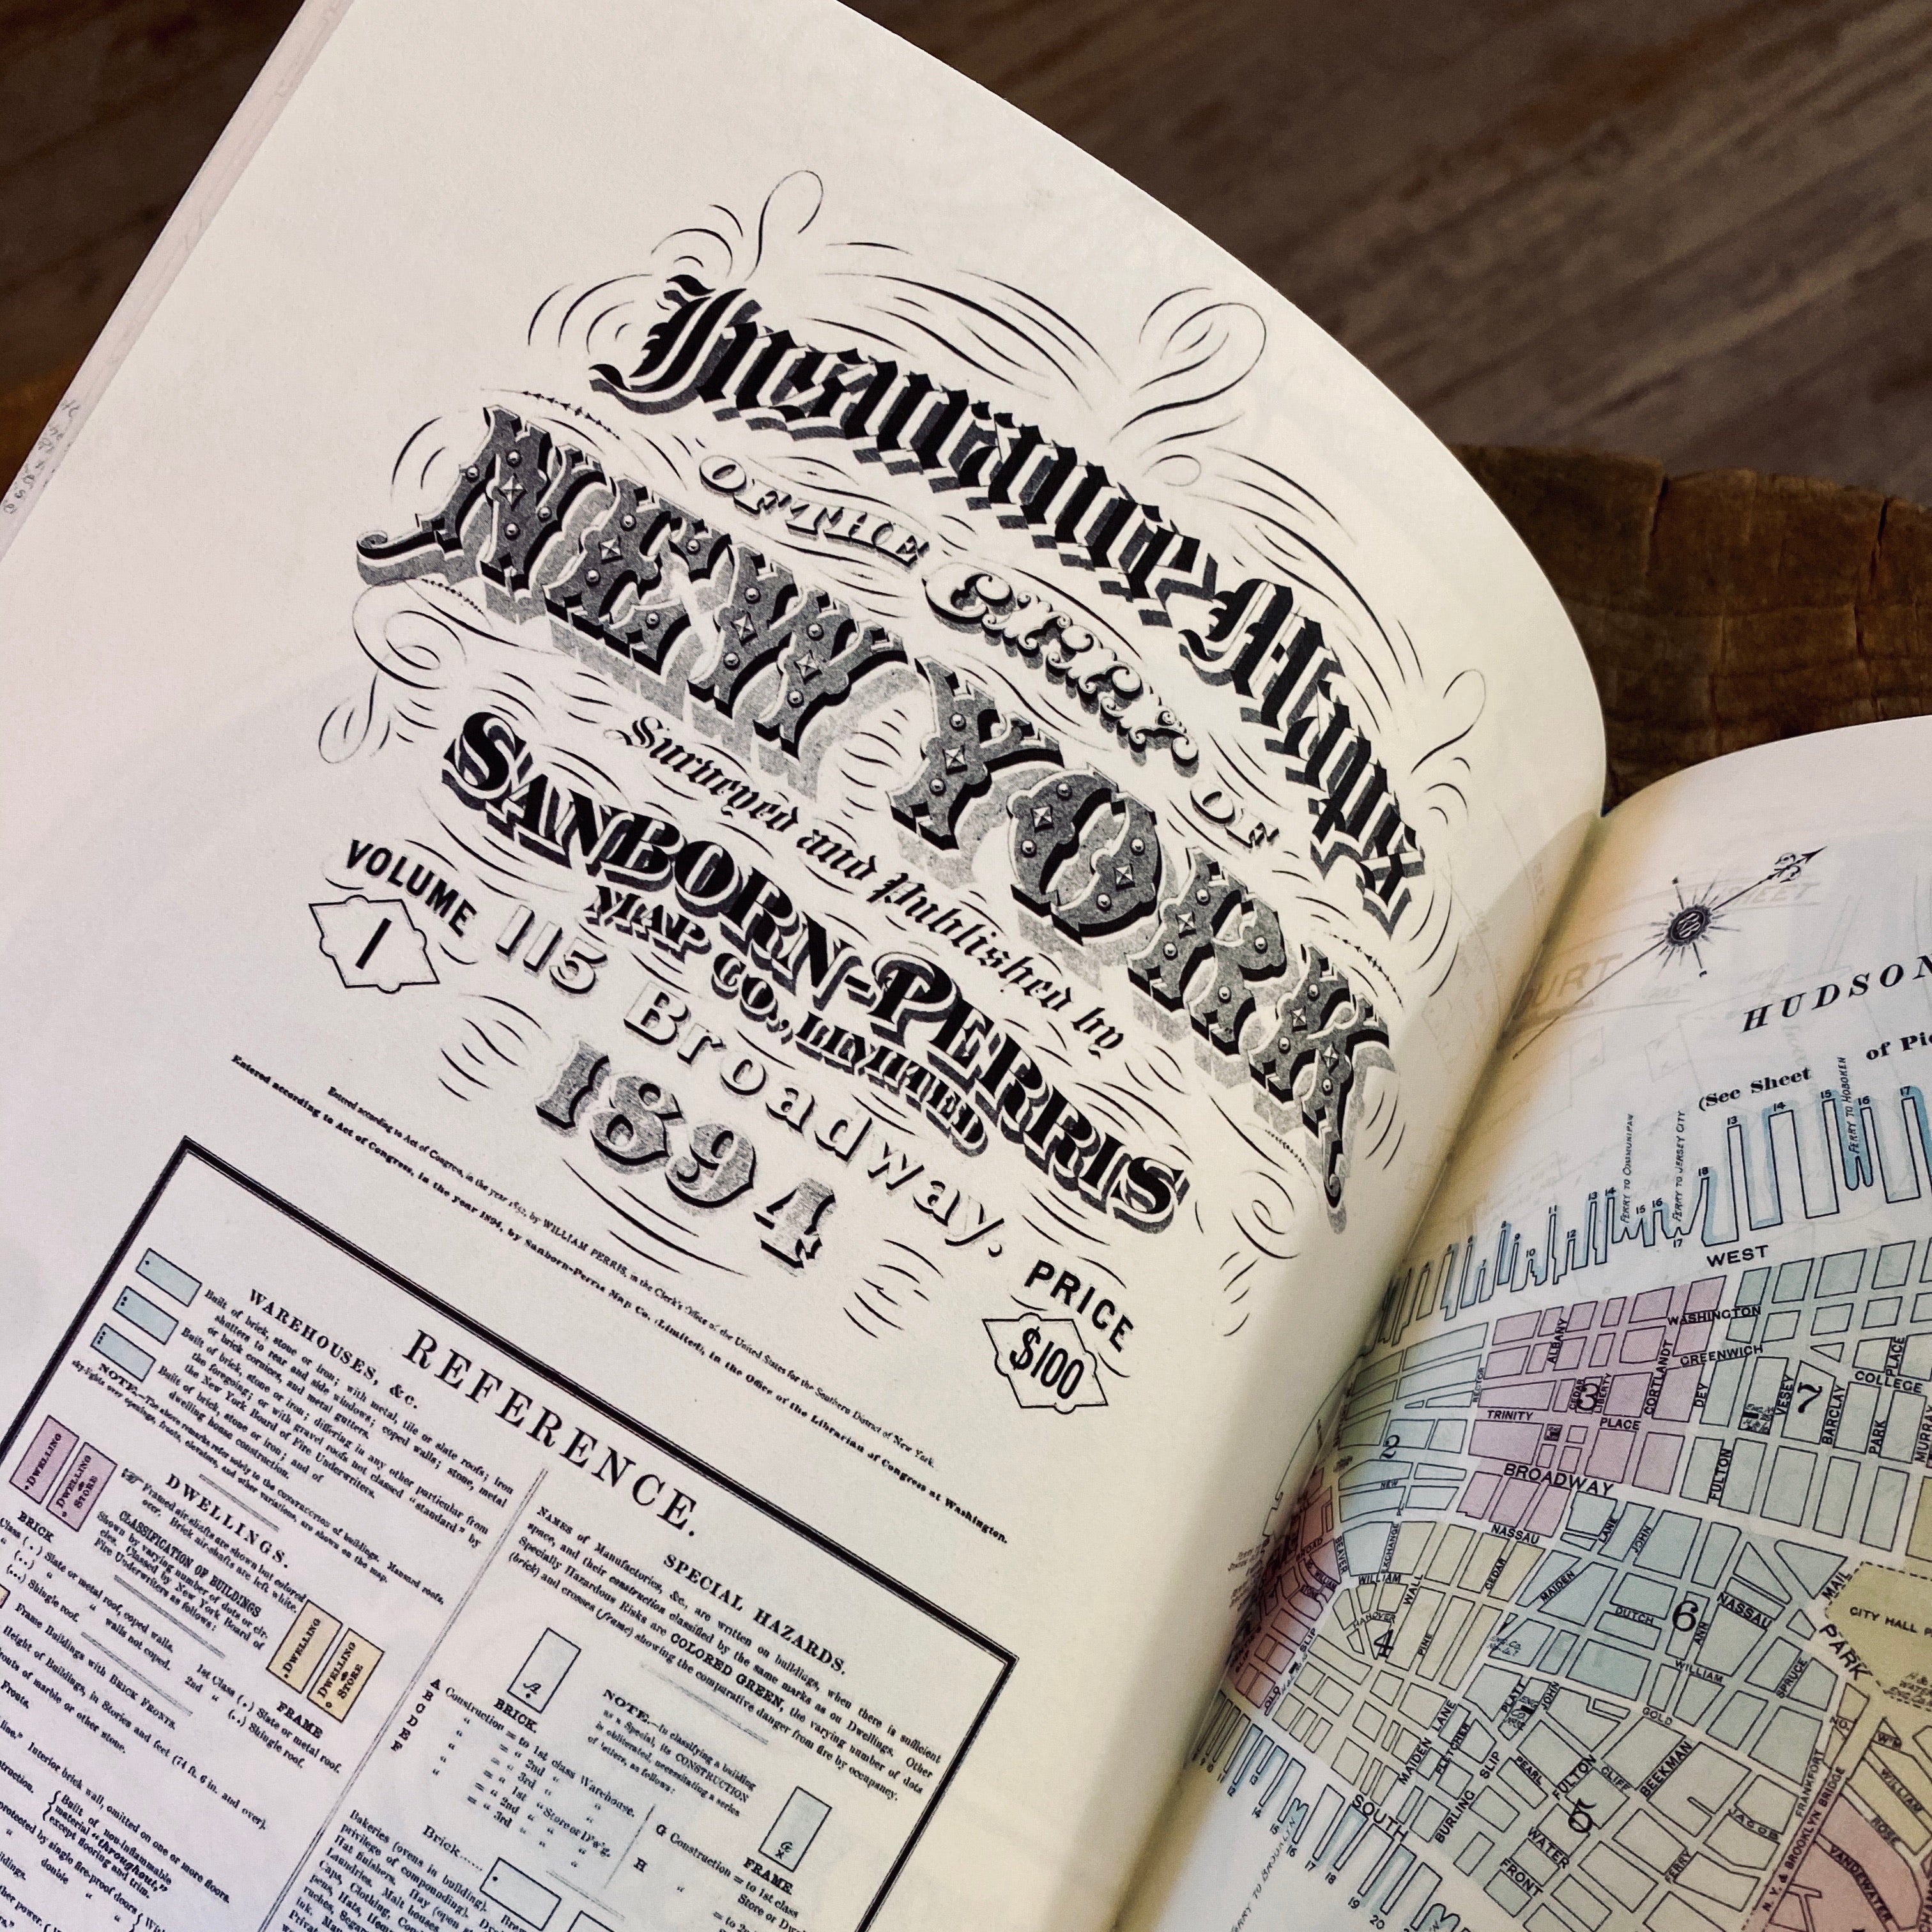 Insurance Maps
OF THE CITY OF
NEW YORK
Surveyed and Published by
SANBORN-PERRIS
MAP CO., LIMITED
115 Broadway.
1894
VOLUME
1
PRICE
$100
Entered according to Act of Congress, in the year 1852, by WILLIAM PERRIS, in the Clerk's Office of the United States for the Southern District of New York.
Entered according to Act of Congress, in the year 1894, by Sanborn-Perris Map Co. (Limited), in the Office of the Librarian of Congress at Washington.
REFERENCE.
WAREHOUSES, &c.
Built of brick, stone or iron; with metal, tile or slate roofs; iron
shutters to rear and side windows; coped walls; stone, metal
or brick cornices, and metal gutters.
Built of brick, stone or iron; differing in any other particular from
the foregoing; or with gravel roofs not classed "standard" by
the New York Board of Fire Underwriters.
Built of brick, stone or iron; and of
dwelling house construction.
NOTE.—The above remarks refer solely to the CONSTRUCTION of buildings. Mansard roofs,
sky-lights over openings, elevators, and other variations, are shown on the map.
DWELLINGS.
DWELLING
DWELLING & STORE
BRICK
Framed air-shafts are shown but colored
over. Brick air-shafts are left white.
CLASSIFICATION OF BUILDINGS
Shown by varying number of dots or cir-
cles. Classed by New York Board of
Fire Underwriters as follows:
Class (.) Slate or metal roof, coped walls.
(..) " " walls not coped.
(...) Shingle roof.
DWELLING
DWELLING & STORE
FRAME
1st Class (.) Slate or metal roof.
2nd " (..) Shingle roof.
Frame Buildings with BRICK FRONTS.
Height of Buildings, in Stories and feet (74 ft. 6 in. and over).
fronts of marble or other stone.
Fronts.
Interior brick wall, omitted on one or more floors.
Built of non-inflammable
material "throughout,"
except flooring and trim.
protected by single fire-proof doors
double
SPECIAL HAZARDS.
NAMES of Manufactories, &c., are written on buildings, when there is sufficient
space, and their construction classified by the same marks as on Dwellings. Other
Specially Hazardous Risks are COLORED GREEN, the varying number of dots
(brick) and crosses (frame) showing the comparative danger from fire by occupancy.
A
BRICK.
NOTE.—In classifying a building
as a Special, its CONSTRUCTION
is obliterated, necessitating a series
of letters, as follows:
A Construction = to 1st class Warehouse.
B " = " 2nd " "
C " = " 3rd " "
D " = " 1st " Store or D'w'g.
E " = " 2nd " "
F " = " 3rd " "
G
FRAME.
G Construction = to 1st class
Store or
H
Brick
Bakeries (ovens in building).
privilege of compounding).
Hat finishers. Hay (open
Laundries. Malt houses.
Caps, Clothing,
HUDSON
of
(See Sheet
FERRY TO COMMUNIPAW
FERRY TO JERSEY CITY
FERRY TO HOBOKEN
13
14
15
16
17
WEST
WASHINGTON
GREENWICH
ALBANY
CEDAR
LIBERTY
CORTLANDT
DEY
VESEY
BARCLAY
COLLEGE PLACE
PARK
MURRAY
TRINITY PLACE
RECTOR
3
7
2
BROADWAY
FULTON
NEW
NASSAU
LANE
JOHN
MAIL
CITY HALL
PARK
EXCHANGE
WILLIAM
WALL
HANOVER
4
PINE
CEDAR
MAIDEN
DUTCH
6
ANN
NASSAU
WILLIAM
SPRUCE
SLIP
OLD
PLATT
JOHN
GOLD
MAIDEN LANE
FLETCHER
BURLING SLIP
PEARL
FULTON
CLIFF
BEEKMAN
FRANKFORT
N.Y. & BROOKLYN BRIDGE
JACOB
WILLIAM
ROSE
VANDEWATER
SOUTH
WATER
FRONT
FERRY
17
18
19
20